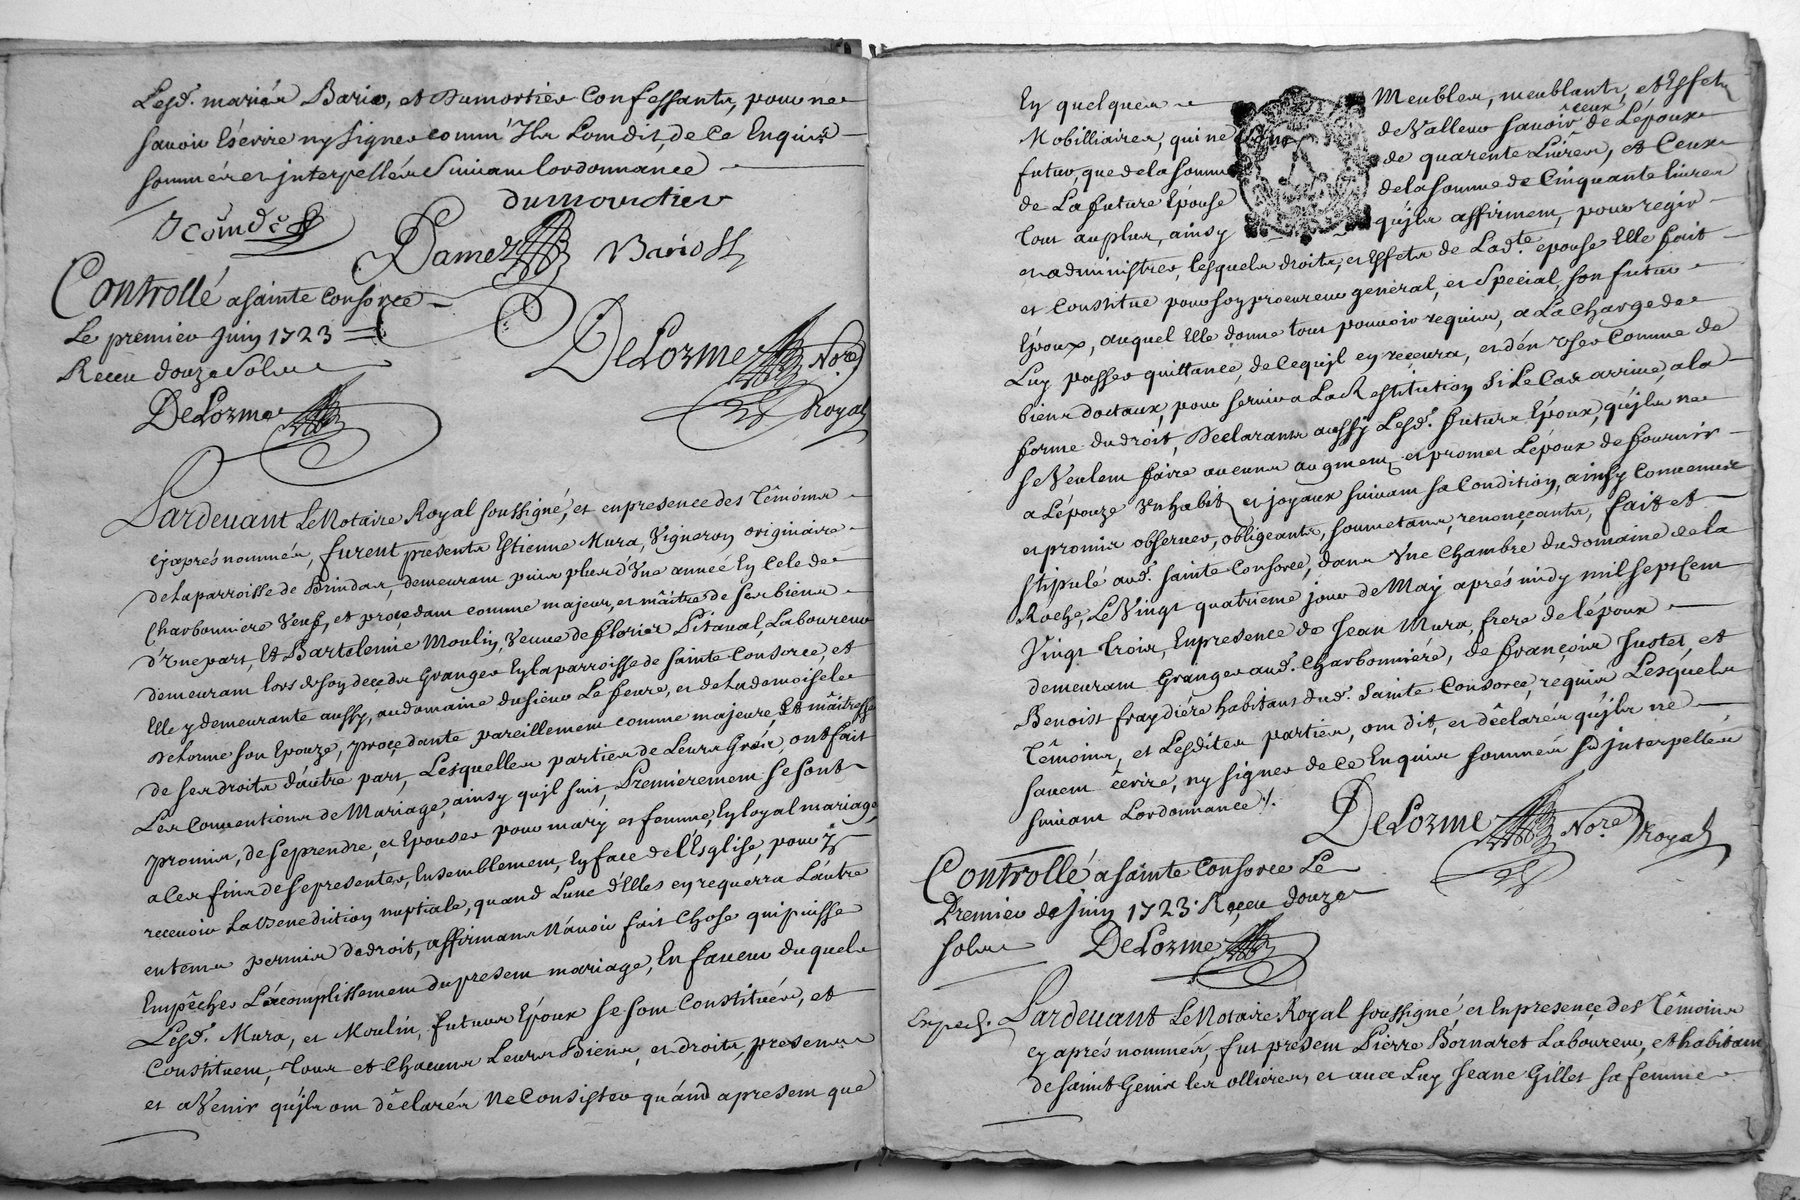 Lesd. mariés Bariot, et Dumortier Confessants, pour ne
savoir Escrire ny signer comm' Ils Lont dit, de Ce Enquis
sommés et jnterpellés Suivant lordonnance
dumourtier
Damez Bariot
Controllé a sainte Consorce
Le premier Juin 1723
Receu douze sols
DeLorme
DeLorme No.re
Royal
Pardevant Le Notaire Royal soussigné, et en presence des Têmoins
cy aprés nommés, furent presents Estienne Mura, Vigneron originaire
de La parroisse de Brindas, demeurant puis plus d'Une année En Cele de
Charbonniere Veuf, et proçedant comme majeur, et mâitre de ses biens
d'Une part, Et Bartelemie Moulin, Veuve de florier Pitaval, Laboureur
demeurant lors de son deçeds Granger En la parroisse de sainte Consorce, et
Elle y demeurante aussy, au domaine du sieur Le feure, et de La demoiselle
Delorme son Epouze, proçedante pareillement comme majeure, Et mâitresse
de ses droits dáutre part, Lesquelles parties de Leurs Grés, ont fait
Les Conventions de Mariage, ainsy qu'jl suit, Premierement se sont
promis, de se prendre, et Epouser pour mary et femme, En loyal mariage
a Ces fins de se presenter, Ensemblement, En face de l'Esglise, pour y
recevoir La Benediction nuptiale, quand L'une d'Elles en requerra L'autre
en tems permis de droit, affirmans N'avoir fait Chose qui puisse
Empêcher L'ácomplissement du present mariage, En faveur du quel
Lesd. Mura, et Moulin, futurs Epoux se sont Constitués, et
Constituent, Tous et Chacuns Leurs Biens, et droits, presens
et a Venir qu'jls ont dêclarés Ne Consister quánd a present que
En quelques Meubles, meublants, et Effets
Mobilliaires, qui ne sont de Valleur savoir ceux de L'époux
futur, que de la somme de quarente Livres, et Ceux
de La future Epouse de la somme de Cinquante livres
Tout au plus, ainsy qu'jls affirment, pour regir
et administrer, lesquels droits, et Effets de Lad.te epouse Elle fait
et Constitue pour son procureur general, et Special, son futur
Epoux, auquel Elle donne tout pouvoir requis, a La Charge de
Luy passer quittance, de Ce qu'jl en reçeura, et d'en User Comme de
biens dotaux, pour servir a La Restitution Si Le Cas arrive, a la
forme du droit, Declarants aussy Lesd. futurs Epoux, qu'jls ne
se Veulent faire aucuns augment, et promet L'époux de fournir
a L'épouze Un habit, et joyaux suivant sa Condition, ainsy Convenu
et promis observer, obligeants, soumetans, renonçeants, fait et
stipulé aud. sainte Consorce, dans Une Chambre du domaine de la
Roche, Le Vingt quatrieme jour de May aprés midy mil sept Cent
Vingt Trois, En presence de Jean Mura, frere de l'époux
demeurant Granger aud. Charbonniére, de françois Juster, et
Benoist fraydiére habitans dud. sainte Consorce, requis Lesquels
Têmoins, et Lesdites parties, ont dit, et dêclarés qu'jls ne
savent êcrire, ny signer de ce Enquis sommés et jnterpellés
suivant Lordonnance /.
DeLorme No.re Royal
Controllé a sainte Consorce Le
Premier de juin 1723. Reçeu douze
sols DeLorme
Exped. Pardevant Le Notaire Royal soussigné, et En presençe des Têmoins
cy aprés nommés, fut present Pierre Bornaret Laboureur, et habitant
de saint Genis les ollieres, et avec Luy Jeane Gillet sa femme